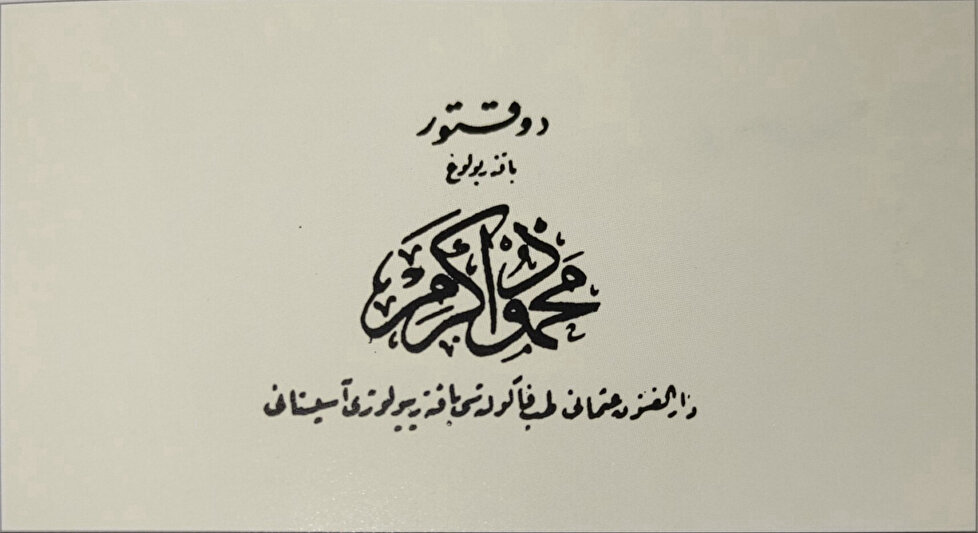 دوقتور
باقتريولوغ
محمود اكرم
دار الفنون عثمانى طب فاكولته سى باقتريولوژى آسيستانى